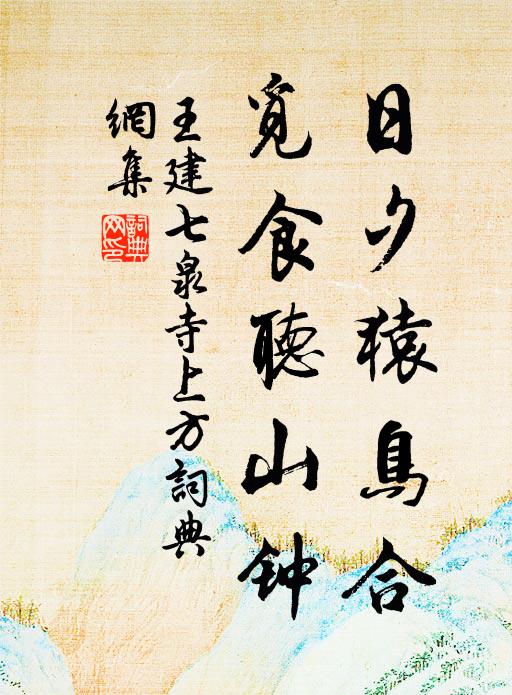 日夕猿鳥合
覓食聽山钟
王建七泉寺上方詞典
網集
詞典
网印